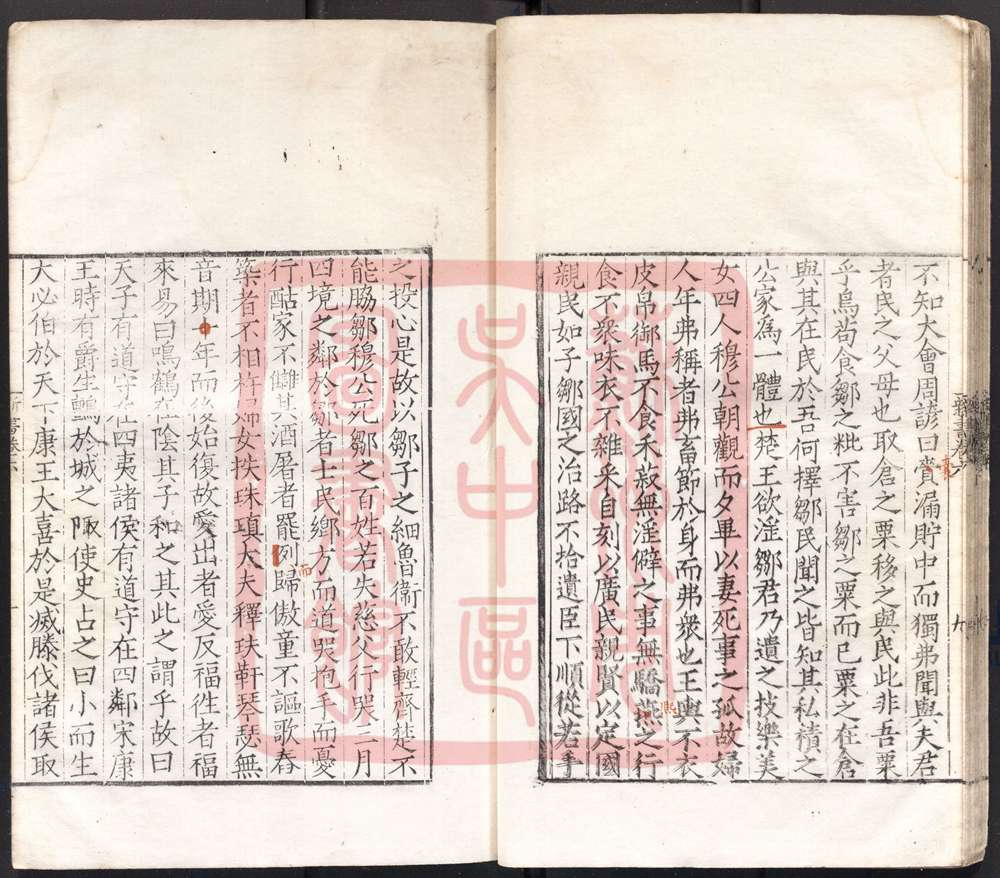 不知大會周諺曰囊漏貯中而獨弗聞與夫君
者民之父母也取倉之粟移之與民此非吾粟
乎鳥茍食鄒之粃不害鄒之粟而已粟之在倉
與其在民於吾何擇鄒民聞之皆知其私積之
公家為一體也楚王欲淫鄒君乃遺之技樂美
女四人穆公朝觀而夕畢以妻死事之孤故婦
人年弗稱者弗畜節於身而弗衆也王輿不衣
皮帛御馬不食禾菽無淫僻之事無驕燕之行
食不衆味衣不雜采自刻以廣民親賢以定國
親民如子鄒國之治路不拾遺臣下順從若手
之投心是故以鄒子之細魯衛不敢輕齊楚不
能脇鄒穆公死鄒之百姓若失慈父行哭三月
四境之鄰於鄒者士民鄉方而道哭抱手而憂
行酤家不讎其酒屠者罷列歸傲童不謳歌舂
築者不相杵婦女抶珠瑱大夫釋玦靬琴瑟無
音期年而後始復故愛出者愛反福徃者福
來易曰鳴鶴在陰其子和之其此之謂乎故曰
天子有道守在四夷諸侯有道守在四鄰宋康
王時有爵生鸇於城之陬使史占之曰小而生
大必伯於天下康王大喜於是滅滕伐諸侯取
新書卷六
九